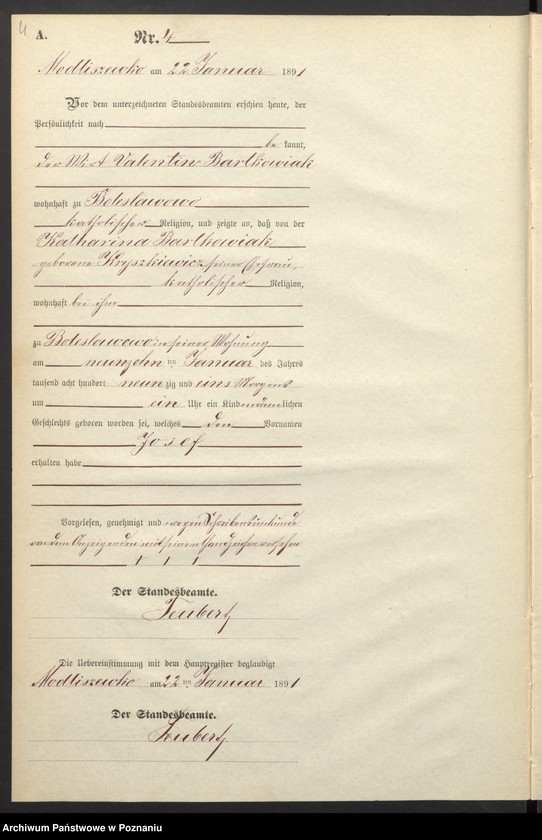 4
A. Nr. 4
Modliszewko am 22 Januar 1891
Vor dem unterzeichneten Standesbeamten erschien heute, der
Persönlichkeit nach
be kannt,
der Wirt Valentin Bartkowiak
wohnhaft zu Boleslawowo
katholischer Religion, und zeigte an, daß von der
Katharina Bartkowiak
geborene Kryszkiewicz seiner Ehefrau,
katholischer Religion,
wohnhaft bei ihm
zu Boleslawowo in seiner Wohnung
am neunzehn ten Januar des Jahres
tausend acht hundert neun zig und eins Morgens
um ein Uhr ein Kind männlichen
Geschlechts geboren worden sei, welches den Vornamen
Josef
erhalten habe
Vorgelesen, genehmigt und wegen Schreibensunkunde
von dem Anzeigenden mit seinem Handzeichen versehen
+ + +
Der Standesbeamte.
Teubert
Die Uebereinstimmung mit dem Hauptregister beglaubigt
Modliszewko am 22 ten Januar 1891
Der Standesbeamte.
Teubert
Archiwum Państwowe w Poznaniu